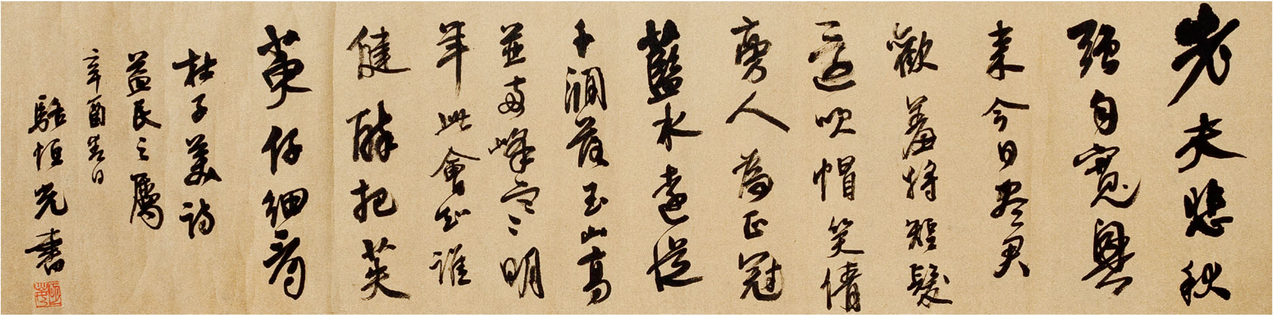 老夫悲秋
强自寬興
來今日尽君
歡羞將短髮
還吹帽笑倩
旁人為正冠
藍水遠從
千澗落玉山高
並兩峰寒明
年此會知誰
健醉把茱
萸仔細看
杜子美詩
益民之屬
辛酉春日
駱恒光書